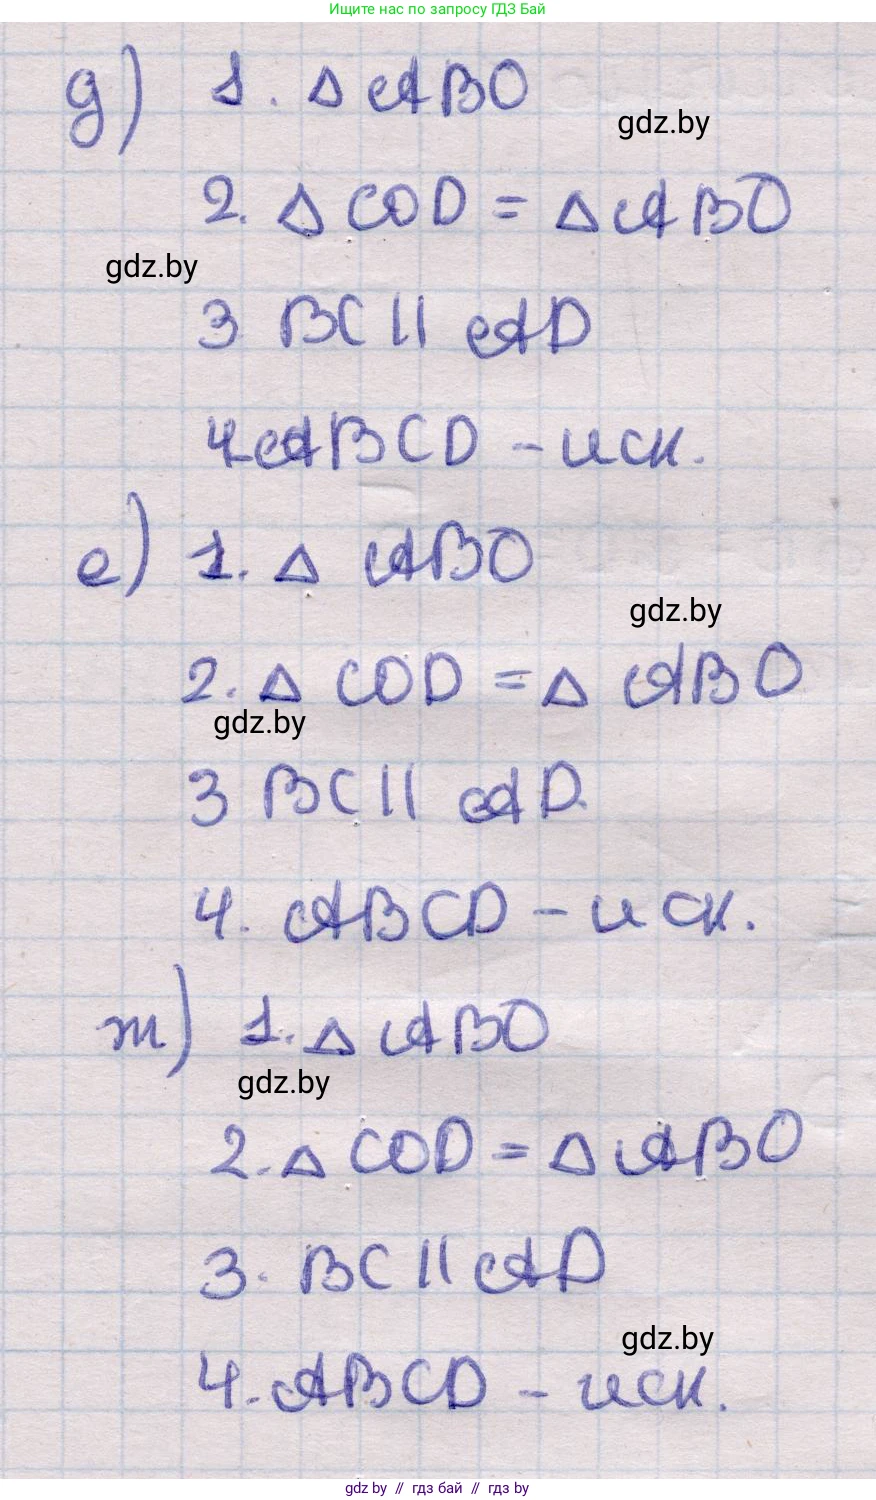 Ищите нас по запросу ГДЗ Бай
д) 1. △ ABO
gdz.by
2. △ COD = △ ABO
gdz.by
3 BC || AD
4. ABCD - иск.
е) 1. △ ABO
gdz.by
2. △ COD = △ ABO
gdz.by
3 BC || AD.
4. ABCD - иск.
ж) 1. △ ABO
gdz.by
2. △ COD = △ ABO
3. BC || AD
gdz.by
4. ABCD - иск.
gdz.by // гдз бай // гдз by